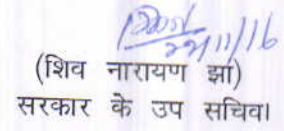 22/11/16
(शिव नारायण झा)
सरकार के उप सचिव।